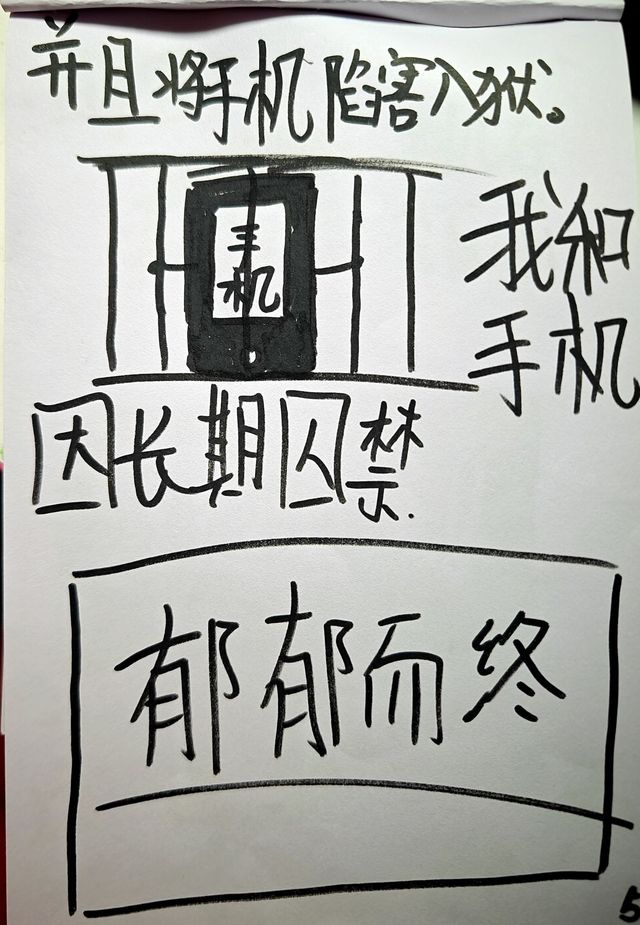 并且将手机陷害入狱。
手机
我和
手机
因长期囚禁.
郁郁而终
5